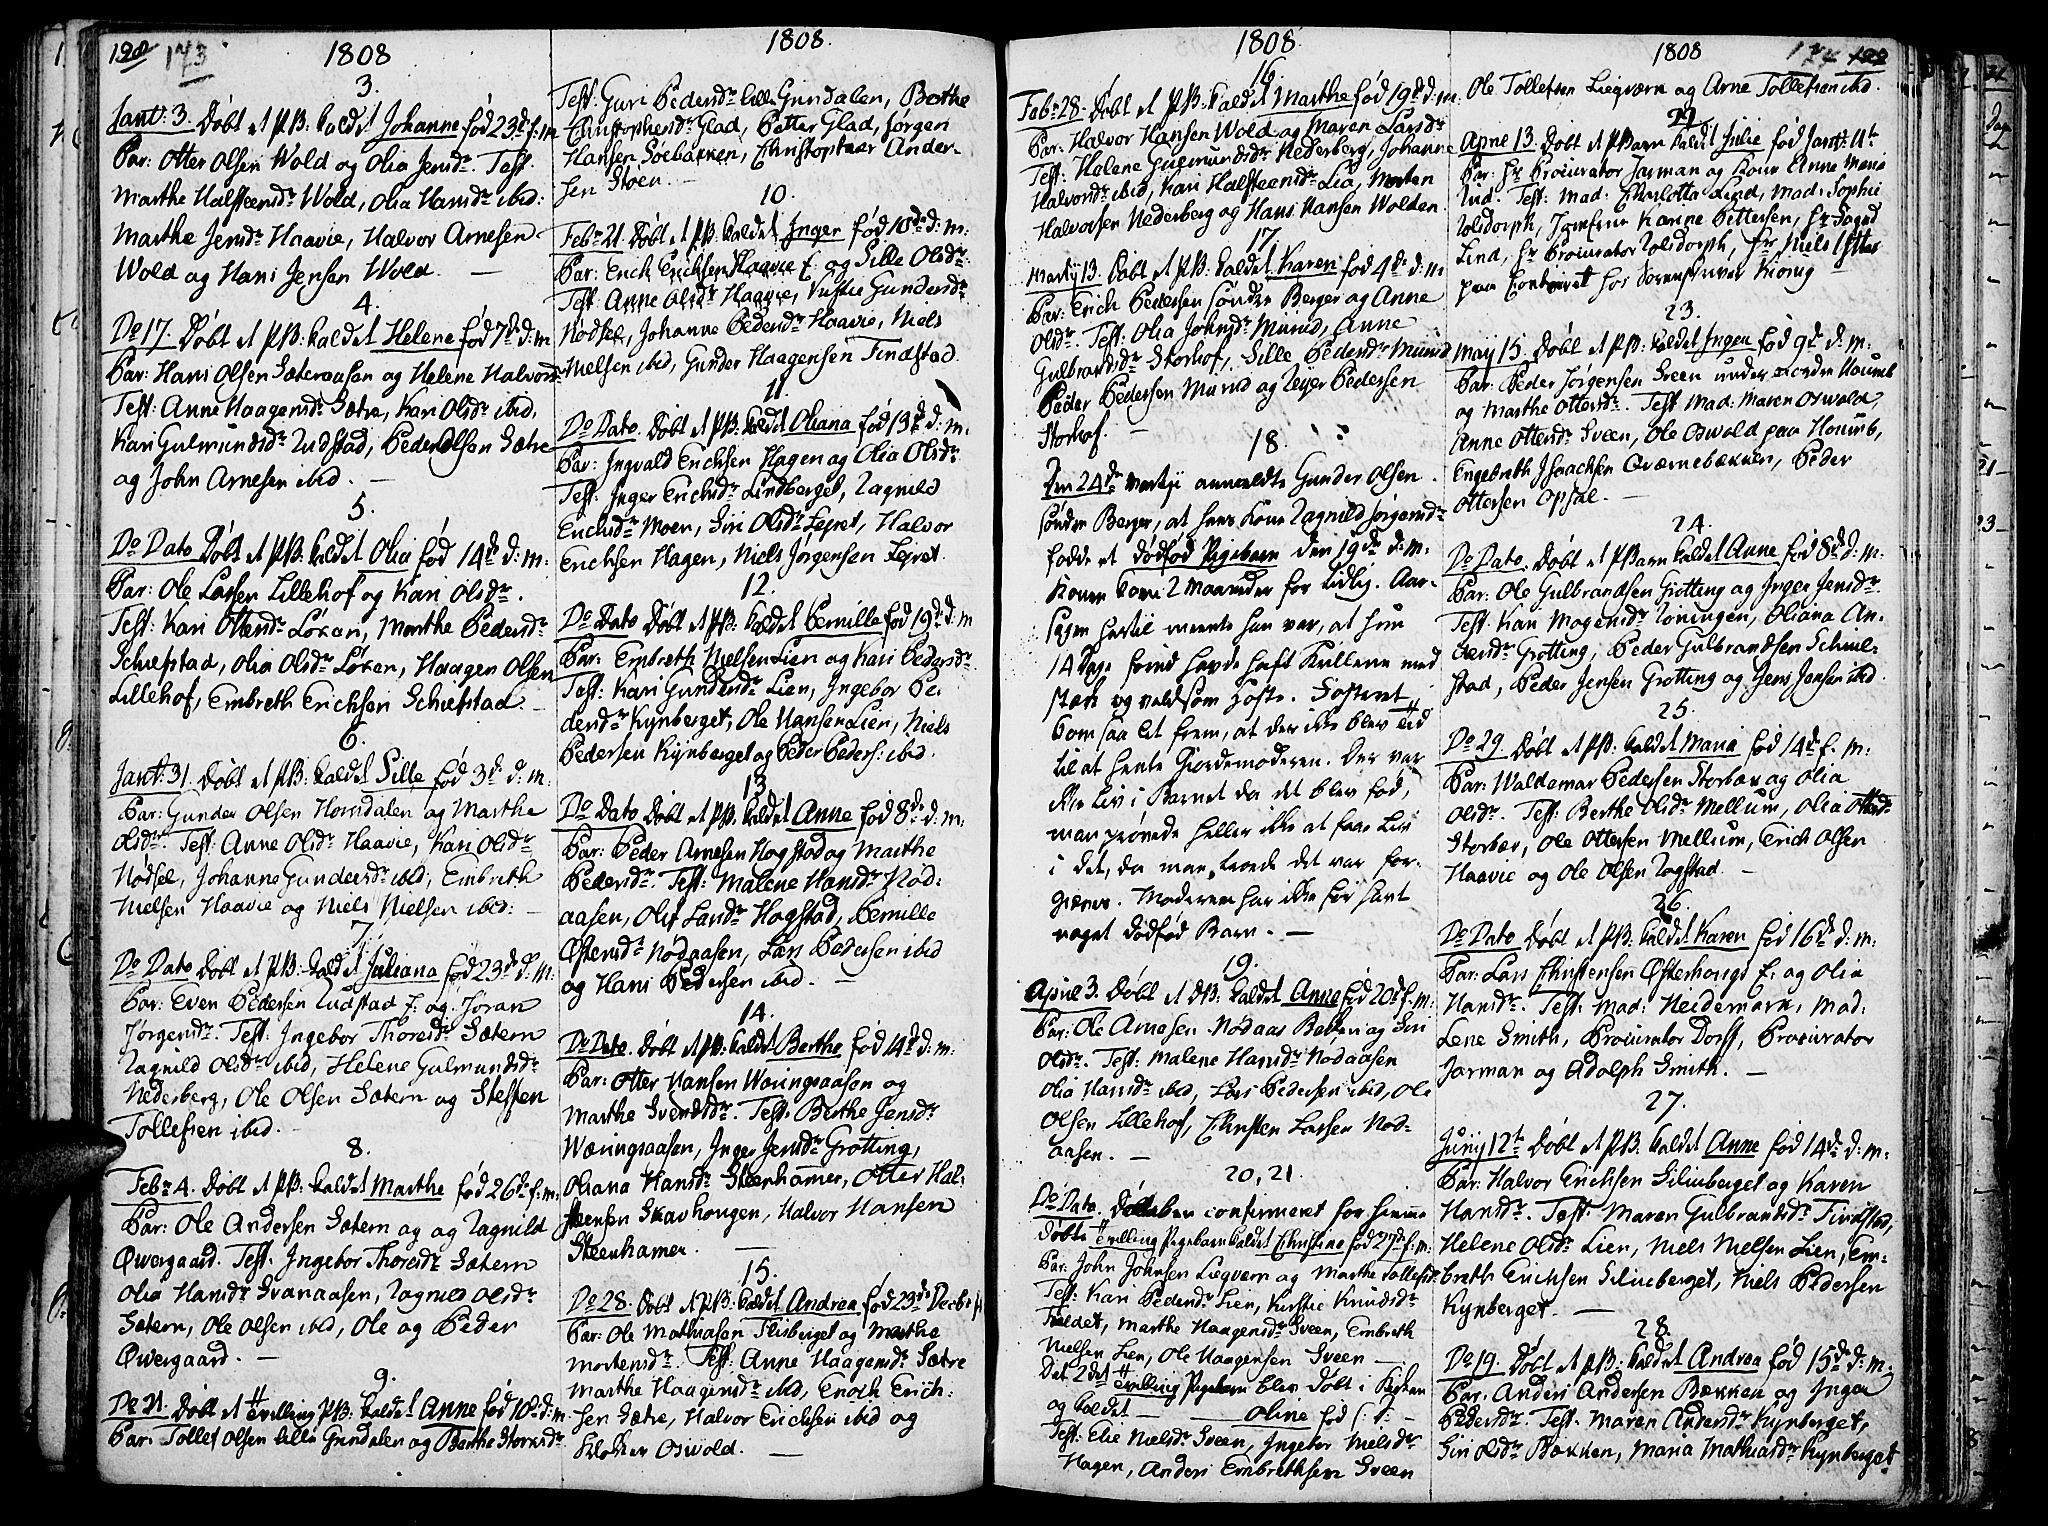 173
1808
3.
Janr: 3. Døbt et PB: kaldet Johanne fød 23d: f: m
Par: Otter Olsen Wold og Olia Jensdr. Test.
Marthe Halsteensdr Wold, Olia Hansdr ibid:
Marthe Jensdr Haavie, Halvor Arnesen
Wold og Hans Jensen Wold. —
4.
Do 17. Døbt et PB: kaldet Helene fød 7d: d: m
Par: Hans Olsen Sæteraasen og Helene Halvorsdr
Test: Anne Haagensdr Sætre, Kari Olsdr ibid,
Kari Gulmundsdr Rudstad, Peder Olsen Sætre
og John Arnesen ibid. —
5.
Do Dato Døbt et PB: kaldet Olia fød 14d: d: m.
Par: Ole Larsen Lillehof og Kari Olsdr.
Test: Kari Ottersdr Løran, Marthe Pedersdr
Schiefstad, Olia Olsdr Løran, Haagen Olsen
Lillehof, Embreth Erichsen Schiefstad. —
6.
Janr: 31. Døbt et PB: kaldet Sille fød 3d: d: m.
Par: Gunder Olsen Horndalen og Marthe
Olsdr. Test: Anne Olsdr Haavie, Kari Olsdr
Nødsel, Johanne Gundersdr ibid, Embreth
Nielsen Haavie og Niels Nielsen ibid: —
7.
Do Dato Døbt et PB. kaldet Juliana fød 23d: d: m:
Par: Even Pedersen Rudstad f: og Joran
Jørgensdr. Test: Ingebor Thoresdr Sætern
Ragnild Olsdr ibid, Helene Gulmundsdr
Nederberg, Ole Olsen Sætern og Steffen
Tollefsen ibid. —
8.
Febr 4. Døbt et PB: kaldet Marthe fød 26d: f: m:
Par: Ole Andersen Sætern og og Ragnild
Øwergaard. Test: Ingebor Thoresdr Sætern
Olia Hansdr Svanaasen, Ragnild Olsdr
Sætern, Ole Olsen ibid, Ole og Peder
Øwergaard. —
9.
Do 21. Døbt et tvilling PB: kaldet Anne fød 10d: d: m
Par: Tollef Olsen Lille Grundalen og Berthe
1808
Test: Guri Pedersdr Lille Grundalen, Berthe
Christophersdr Glad, Petter Glad, Jørgen
Hansen Soebakken, Christophar Ander-
sen Stoen. —
10.
Febr 21. Døbt et PB: kaldet Inger fød 10d: d: m:
Par: Erich Erichsen Haavie f. og Sille Olsdr.
Test: Anne Olsdr Haavie, Gundersdr
Nødsel, Johanne Pedersdr Haavie, Niels
Nielsen ibid, Gunder Haagensen Findstad.
11.
Do Dato. Døbt et PB: kaldet Oliana fød 13d: d: m.
Par: Ingvald Erichsen Hagen og Olia Olsdr.
Test: Inger Erichsdr Lindberget, Ragnild
Erichsdr Moen, Siri Olsdr Lejret, Halvor
Erichsen Hagen, Niels Jørgensen Lejret.
12.
Do Dato Døbt et PB: kaldet Pernille fød 19d: d: m
Par: Embreth Nielsen Lien og Kari Pedersdr.
Test: Kari Gundersdr Lien, Ingebor Pe-
dersdr Kynberget, Ole Hansen Lien, Niels
Pedersen Kynberget og Peder Peders: ibid.
13
Do Dato Døbt et PB: kaldet Anne fød 8d: d: m:
Par: Peder Arnesen Hogstad og Marthe
Pedersdr. Test: Malene Hansdr Nød-
aasen, Olif Larsdr Hogstad, Pernille
Østensdr Nødaasen, Lars Pedersen ibid
og Hans Pedersen ibid. —
14.
Do Dato. Døbt et PB: kaldet Berthe fød 14d: d: m:
Par: Otter Hansen Wæringsaasen og
Marthe Svendsdr. Test: Berthe Jensdr
Wæringsaasen, Inger Jensdr Grøtting,
Oliana Hansdr Steenhamer, Otter Hal-
steensen Skavhougen, Halvor Hansen
Steenhamer. —
15.
Do 28. Døbt et PB: kaldet Andrea fød 23d: Decbr
Par: Ole Mathiasen Flisberget og Marthe
Mortensdr. Test: Anne Haagensdr Sætre
Marthe Haagensdr ibid, Enoch Erich-
sen Sætre, Halvor Erichsen ibid og
Klokker Oswold. —
1808
16.
Febr 28. Døbt et PB: kaldet Marthe fød 19d: d: m:
Par: Halvor Hansen Wold og Maren Larsdr
Test: Helene Gulmundsdr Nederberg, Johanne
Halvorsdr ibid, Kari Halsteensdr Lia, Morten
Halvorsen Nederberg og Hans Hansen Wolden
17.
Martij 13. Døbt et PB: kaldet Karen fød 4d: d: m
Par: Erich Pedersen søndre Berger og Anne
Olsdr. Test: Olia Johnsdr Munid, Anne
Gulbrandsdr Storhof, Sille Pedersdr Munid
Peder Pedersen Munid og Reyer Pedersen
Storhof. —
18.
Den 24de Martij anmeldte Gunder Olsen
søndre Berger, at hans Kone Ragnild Jørgensdr
fødde et dødfød Pigebarn den 19de d: m.
Konen kom 2 Maaneder for tidlig. Aar-
sagen hertil meente han var, at hun
14 Dage forud havde haft Kullene med
stærk og voldsom Hoste. Fosteret
kom saa let frem, at der ikke blev tid
til at hente Giordemoderen. Der var
ikke Liv i Barnet da det blev fød,
man prøvede heller ikke at faae Liv
i det, da man troede det var for-
gieves. Moderen har ikke før havt
noget dødfød Barn. —
19.
April 3. Døbt et DB: kaldet Anne fød 20d: f: m:
Par: Ole Arnesen Nødaas Bakken og Siri
Olsdr. Test: Malene Hansdr Nødaasen
Olia Hansdr ibid, Lars Pedersen ibid, Ole
Olsen Lillehof, Christen Larsen Nød-
aasen. —
20, 21.
Do Dato. Daaben confirmeret for hjemme
døbte tvilling Pigebarn kaldet Christine fød 27d: f: m:
Par: John Johnsen Liegvern og Marthe Tollefsdr.
Test: Kari Pedersdr Lien, Kirstie Knudsdr
Fieldet, Marthe Haagensdr Sveen, Embreth
Nielsen Lien, Ole Haagensen Sveen —
Det 2det tvilling Pigebarn blev døbt i Kirken
og kaldet — Oline fød
Test: Elie Nielsdr Sveen, Ingebor Nielsdr
Hagen, Anders Embrethsen Sveen
174
1808
Ole Tollefsen Liegværn og Arne Tollefsen ibid.
22
April 13. Døbt et PBarn kaldet Julie fød Janr: 11te
Par: Hr Procurator Jarman og Kone Anne Maria
Lind. Test: Mad: Charlotta Lind, Mad: Sophie
Rolsdorph, Jomfrue Karine Pettersen, Hr Foged
Lind, Hr Procurator Rolsdorph, Hr Niels
paa Contoiret hos Sorenskriver Kionig
23.
May 15. Døbt et PB: kaldet Ingen fød 9d: d: m:
Par: Peder Jørgensen Sveen under nordre Houmb
og Marthe Ottersdr. Test Mad: Maren Oswold,
Anne Ottersdr Sveen, Ole Oswold paa Houmb,
Engebreth Isaachsen Qværnebækken, Peder
Ottersen Opsal. —
24.
Do Dato. Døbt et PBarn kaldet Anne fød 8d: d: m:
Par: Ole Gulbrandsen Grøtting og Inger Jensdr.
Test: Kari Mogensdr Roningen, Oliana An-
dersdr Grøtting, Peder Gulbrandsen
stad, Peder Jensen Grøtting og Jens Jensen ibid.
25.
Do 29. Døbt et PB: kaldet Maria fød 14d: f: m:
Par: Waldemar Pedersen Storbær og Olia
Olsdr. Test: Berthe Olsdr Mellum, Olia Ottersdr
Storbær, Ole Ottersen Mellum, Erich Olsen
Haavie og Ole Olsen Rogstad. —
26.
Do Dato. Døbt et PB: kaldet Karen fød 16d: d: m:
Par: Lars Christensen Østerhougs f: og Olia
Hansdr. Test: Mad: Heidemark, Mad:
Lene Smith, Procurator Dorff, Procurator
Jarman og Adolph Smith. —
27.
Junij 12te Døbt et PB: kaldet Anne fød 14d: d: m:
Par: Halvor Erichsen Siliuberget og Karen
Hansdr. Test: Maren Gulbrandsdr Findstad,
Helene Olsdr Lien, Niels Nielsen Lien, Em-
breth Erichsen Siliuberget, Niels Pedersen
Kynberget. —
28.
Do 19. Døbt et PB: kaldet Andrea fød 15d: d: m:
Par: Anders Andersen Bækken og Inger
Pedersdr. Test: Maren Andersdr Kynberget,
Siri Olsdr Bækken, Maria Mathiasdr Kynberget